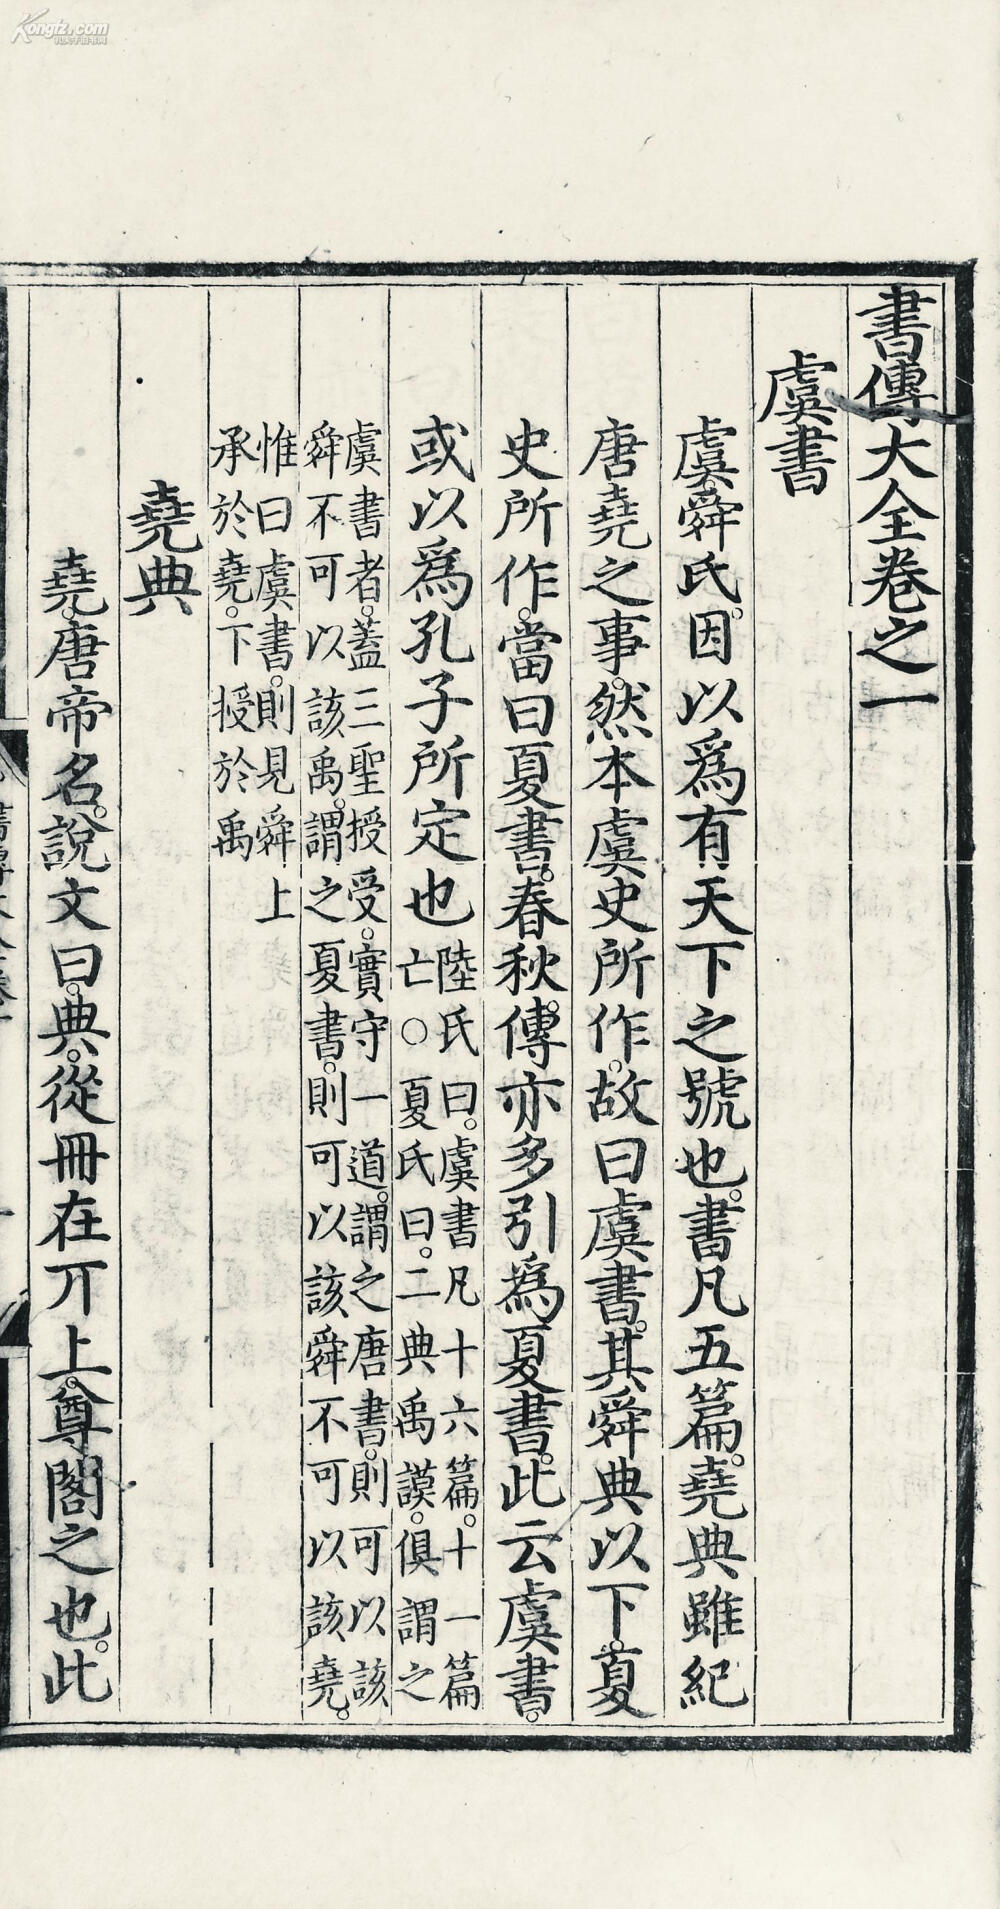 書傳大全卷之一
虞書
虞舜氏。因以爲有天下之號也。書凡五篇。堯典雖紀
唐堯之事。然本虞史所作。故曰虞書。其舜典以下。夏
史所作。當曰夏書。春秋。傳亦多引爲夏書。此云虞書。
或以爲孔子所定也
陸氏曰。虞書凡十六篇。十一篇
亡○夏氏曰。二典禹謨。俱謂之
虞書者。蓋三聖授受。實守一道。謂之唐書。則可以該
舜不可以該禹。謂之夏書。則可以該舜不可以該堯。
惟曰虞書。則見舜上
承於堯。下授於禹
堯典
堯。唐帝名。說文曰。典。從冊在丌上。尊閣之也。此
Kongfz.com
孔夫子旧书网